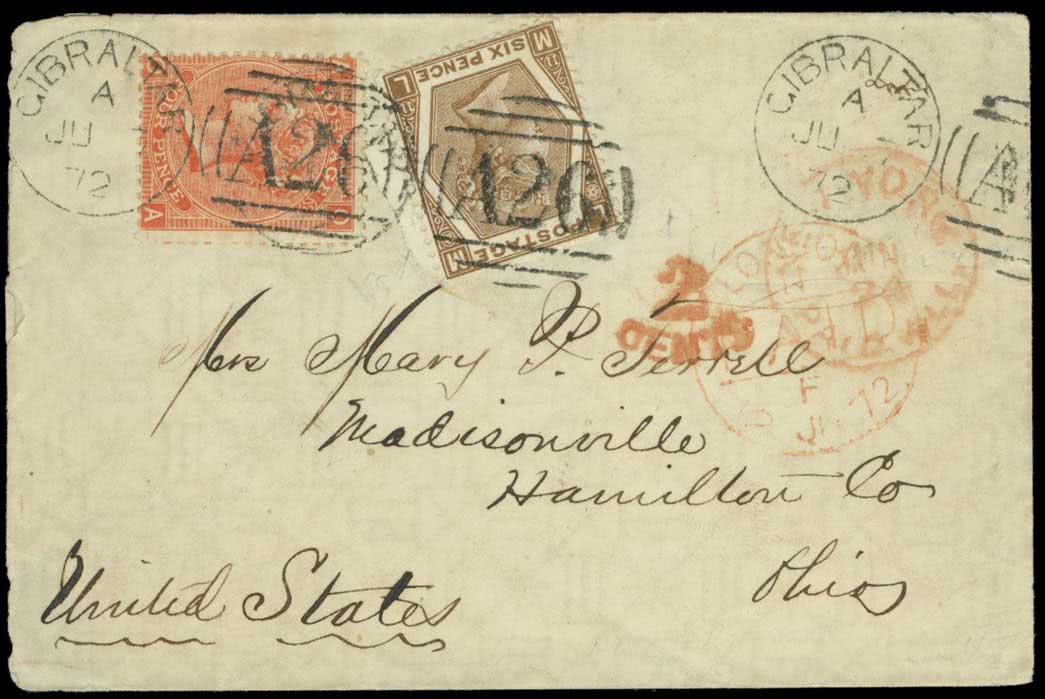 GIBRALTAR
A
JU
72
FOUR PENCE
A
A26
SIX PENCE
L
M
POSTAGE
M
A26
GIBRALTAR
A
JU
72
2
CENTS
PAID
JUN
24
LONDON
F
JU
72
Mrs Mary P. Terrell
Madisonville
Hamilton Co
Ohio
United States